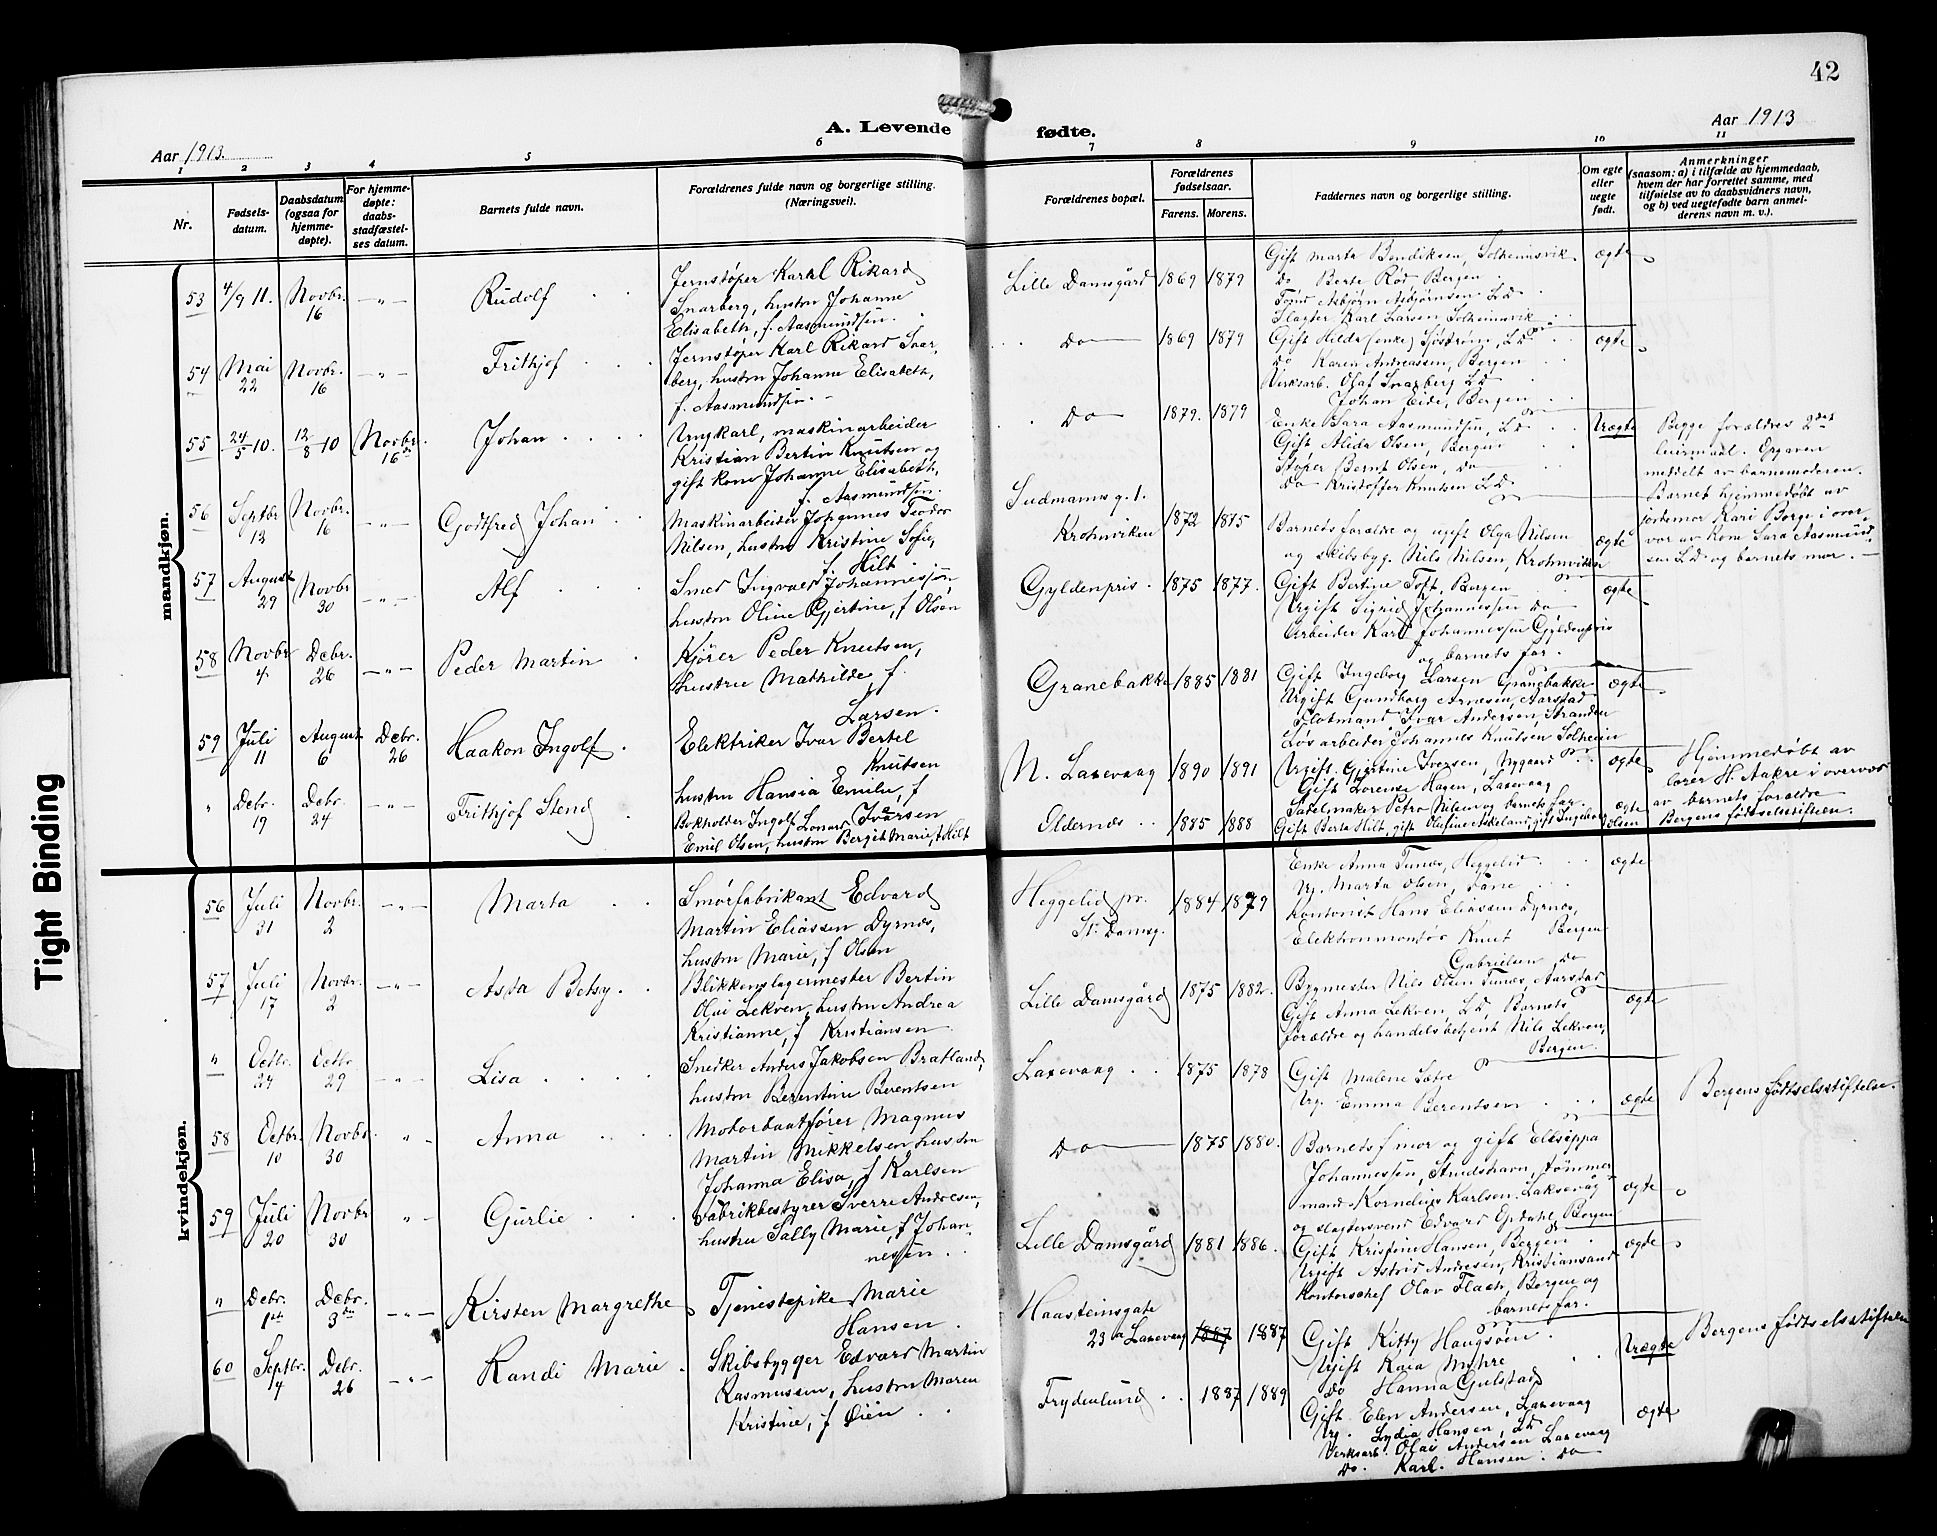 42
A. Levende fødte.
Aar 1913.
Aar 1913
1 2 3 4 5 6 7 8 9 10 11
Nr.
Fødsels-
datum.
Daabsdatum
(ogsaa for
hjemme-
døpte).
For hjemme-
døpte:
daabs-
stadfæstel-
ses datum.
Barnets fulde navn.
Forældrenes fulde navn og borgerlige stilling.
(Næringsvei).
Forældrenes bopæl.
Forældrenes
fødselsaar.
Farens. Morens.
Faddernes navn og borgerlige stilling.
Om egte
eller
uegte
født.
Anmerkninger
(saasom: a) i tilfælde av hjemmedaab,
hvem der har forrettet samme, med
tilføielse av to daabsvidners navn,
og b) ved uegtefødte barn anmel-
derens navn m. v.).
mandkjøn.
53 4/9 11. Novbr. 16 -"- Rudolf
Jernstøper Karl Rikard
Snarberg, hustru Johanne
Elisabeth, f. Aasmundsen.
Lille Damsgård 1869 1879
Gift Marta Bendiksen, Solheimsvik
Do Berte Röd, Bergen
Asbjørn Asbjørnsen LD
Slagter Karl Larsen Solheimsvik
ægte
54 Mai 22 Novbr. 16 -"- Frithjof
Jernstøper Karl Rikard Snar-
berg, hustru Johanne Elisabeth,
f. Aasmundsen.
Do 1869 1879
Gift Hilda (enke) Sjöström, LD
Do Karen Andreassen, Bergen
Verksarb. Olaf Snarberg LD
Johan Eide, Bergen
ægte
55 24/5 10. 12/8 10 Novbr. 16de Johan
Ungkarl, maskinarbeider
Kristian Bertin Knutsen og
gift kone Johanne Elisabeth,
f. Aasmundsen.
Do 1879. 1879
Enke Sara Aasmundsen, LD
Gift Alida Olsen, Bergen
Støper Bernt Olsen, do
Do Kristoffer Knutsen LD
Uægte
Begge forældres 2det
leiermaal. Opgaven
meddelt av barnemoderen.
Barnet hjemmedøbt av
jordemor Kari Berge i over-
vær av Kone Sara Aasmund-
sen LD og barnets mor.
56 Septbr 13 Novbr. 16 -"- Godtfred Johan
Maskinarbeider Johannes Teodor
Nilsen, hustru Kristine Sofie,
f. Hilt
Sudmannsg. 1.
Krohnviken 1872 1875
Barnets forældre og ugift Olga Nilsen
og skibsbyg. Nils Nilsen, Krohnviken
ægte
57 August 29 Novbr 30 -"- Alf
Smed Ingvald Johannessøn
hustru Oline Gjertine, f Olsen
Gyldenpris 1875 1877.
Gift Bertine Toft, Bergen
Ugift Sigrid Johannessen do
Arbeider Karl Johannessen Gyldenpris
og barnets far.
ægte
58 Novbr 4 Debr. 26 -"- Peder Martin
Kjører Peder Knutsen,
hustru Mathilde, f.
Larsen.
Granebakke 1885 1881
Gift Ingeborg Larsen Granebakke
Ugift Gundborg Arnesen, Aarstad
Flotmand Ivar Andersen, Stranden
Løsarbeider Johannes Knutsen Solheim
ægte
59 Juli 11 August 6 Debr. 26 Haakon Ingolf
Elektriker Ivar Bertel
Knutsen
hustru Hansia Emilie, f
Iversen
N. Laxevaag 1890 1891
Ugift. Gjertine Iversen, Nygaard
Gift Lorense Hagen, Laxevaag
Salelmaker Petro Nilsen og barnets far.
ægte
Hjemmedøbt av
lærer H. Aakre i overvær
av barnets forældre
" Debr. 19 Debr. 24 -"- Frithjof Stend
Bokholder Ingolf Leonard
Emil Olsen, hustru Bergit Marie, f Hilt
Eldernæs 1885 1888
Gift Berta Hilt, gift Olufine Askeland, gift Ingeborg
Olsen
ægte
Bergens fødselsstiftelse.
kvindekjøn.
56 Juli 31 Novbr. 2 -"- Marta
Smørfabrikant Edvard
Martin Eliassen Dyrnes,
hustru Marie, f Olsen
Heggelid pr.
St. Damsg. 1884 1879
Enke Anna Tunes, Heggelid.
Ug. Marta Olsen, Fane
Kontorist Hans Eliassen Dyrnes,
Bergen
Elektronmontør Knut
Gabrielsen, do
ægte
57 Juli 17 Novbr. 2 -"- Asta Betsy.
Blikkenslagermester Bertin
Olai Lekven, hustru Andrea
Kristianne, f Kristiansen
Lille Damsgård 1875 1882.
Bygmester Nils Olsen Tunes, Aarstad
Gift Anna Lekven, LD, Barnets
forældre og handelsbetjent Nils Lekven,
Bergen.
ægte
" Octbr. 27 Octbr 29 -"- Lisa
Snedker Anders Jakobsen Bratland,
hustru Berentine Berentsen
Laxevaag 1875 1878
Gift Malene Sætre
Ug. Emma Berentsen
ægte
Bergens fødtselsstiftelse.
58 Octbr. 10 Novbr. 30 "- Anna
Motorbaatfører Magnus
Martin Mikkelsen hustru
Johanna Elisa, f Karlsen
Do 1875 1880.
Barnets f mor og gift Elisippa
Johannessen, Strudshavn, tømmer-
mand Kornelius Karlsen. Laksevåg
og slagtersvend Edvard Opdahl, Bergen
ægte
59 Juli 20 Novbr 30 "- Gurlie
Fabrikbestyrer Sverre Andresen,
hustru Sally Marie, f Johan-
nessen
Lille Damsgård 1881 1886.
Gift Kristine Hansen, Bergen
Ugift Astrid Andresen, Kristianssand
Kontorchef Olav Flach, Bergen og
barnets far.
ægte
" Debr. 1ste Debr. 3die -"- Kirsten Margrethe
Tjenestepike Marie
Hansen
Haasteinsgate
23a Laxevaag 1887 1887
Gift Kitty Haugsøen
Ugift Kaia Myhre
Do Hanna Gulstad
Uægte
Bergens fødtselsstiftelse
60 Septbr. 4 Debr. 26 -"- Randi Marie
Skibsbygger Edvard Martin
Rasmussen, hustru Maren
Kristine, f Øien
Frydenlund 1887 1889
Gift. Elen Andersen, Laxevaag
Ug. Lydia Hansen, LD
Verksarb. Olai Andersen Laxevaag
Do. Karl. Hansen. do
ægte
Tight Binding